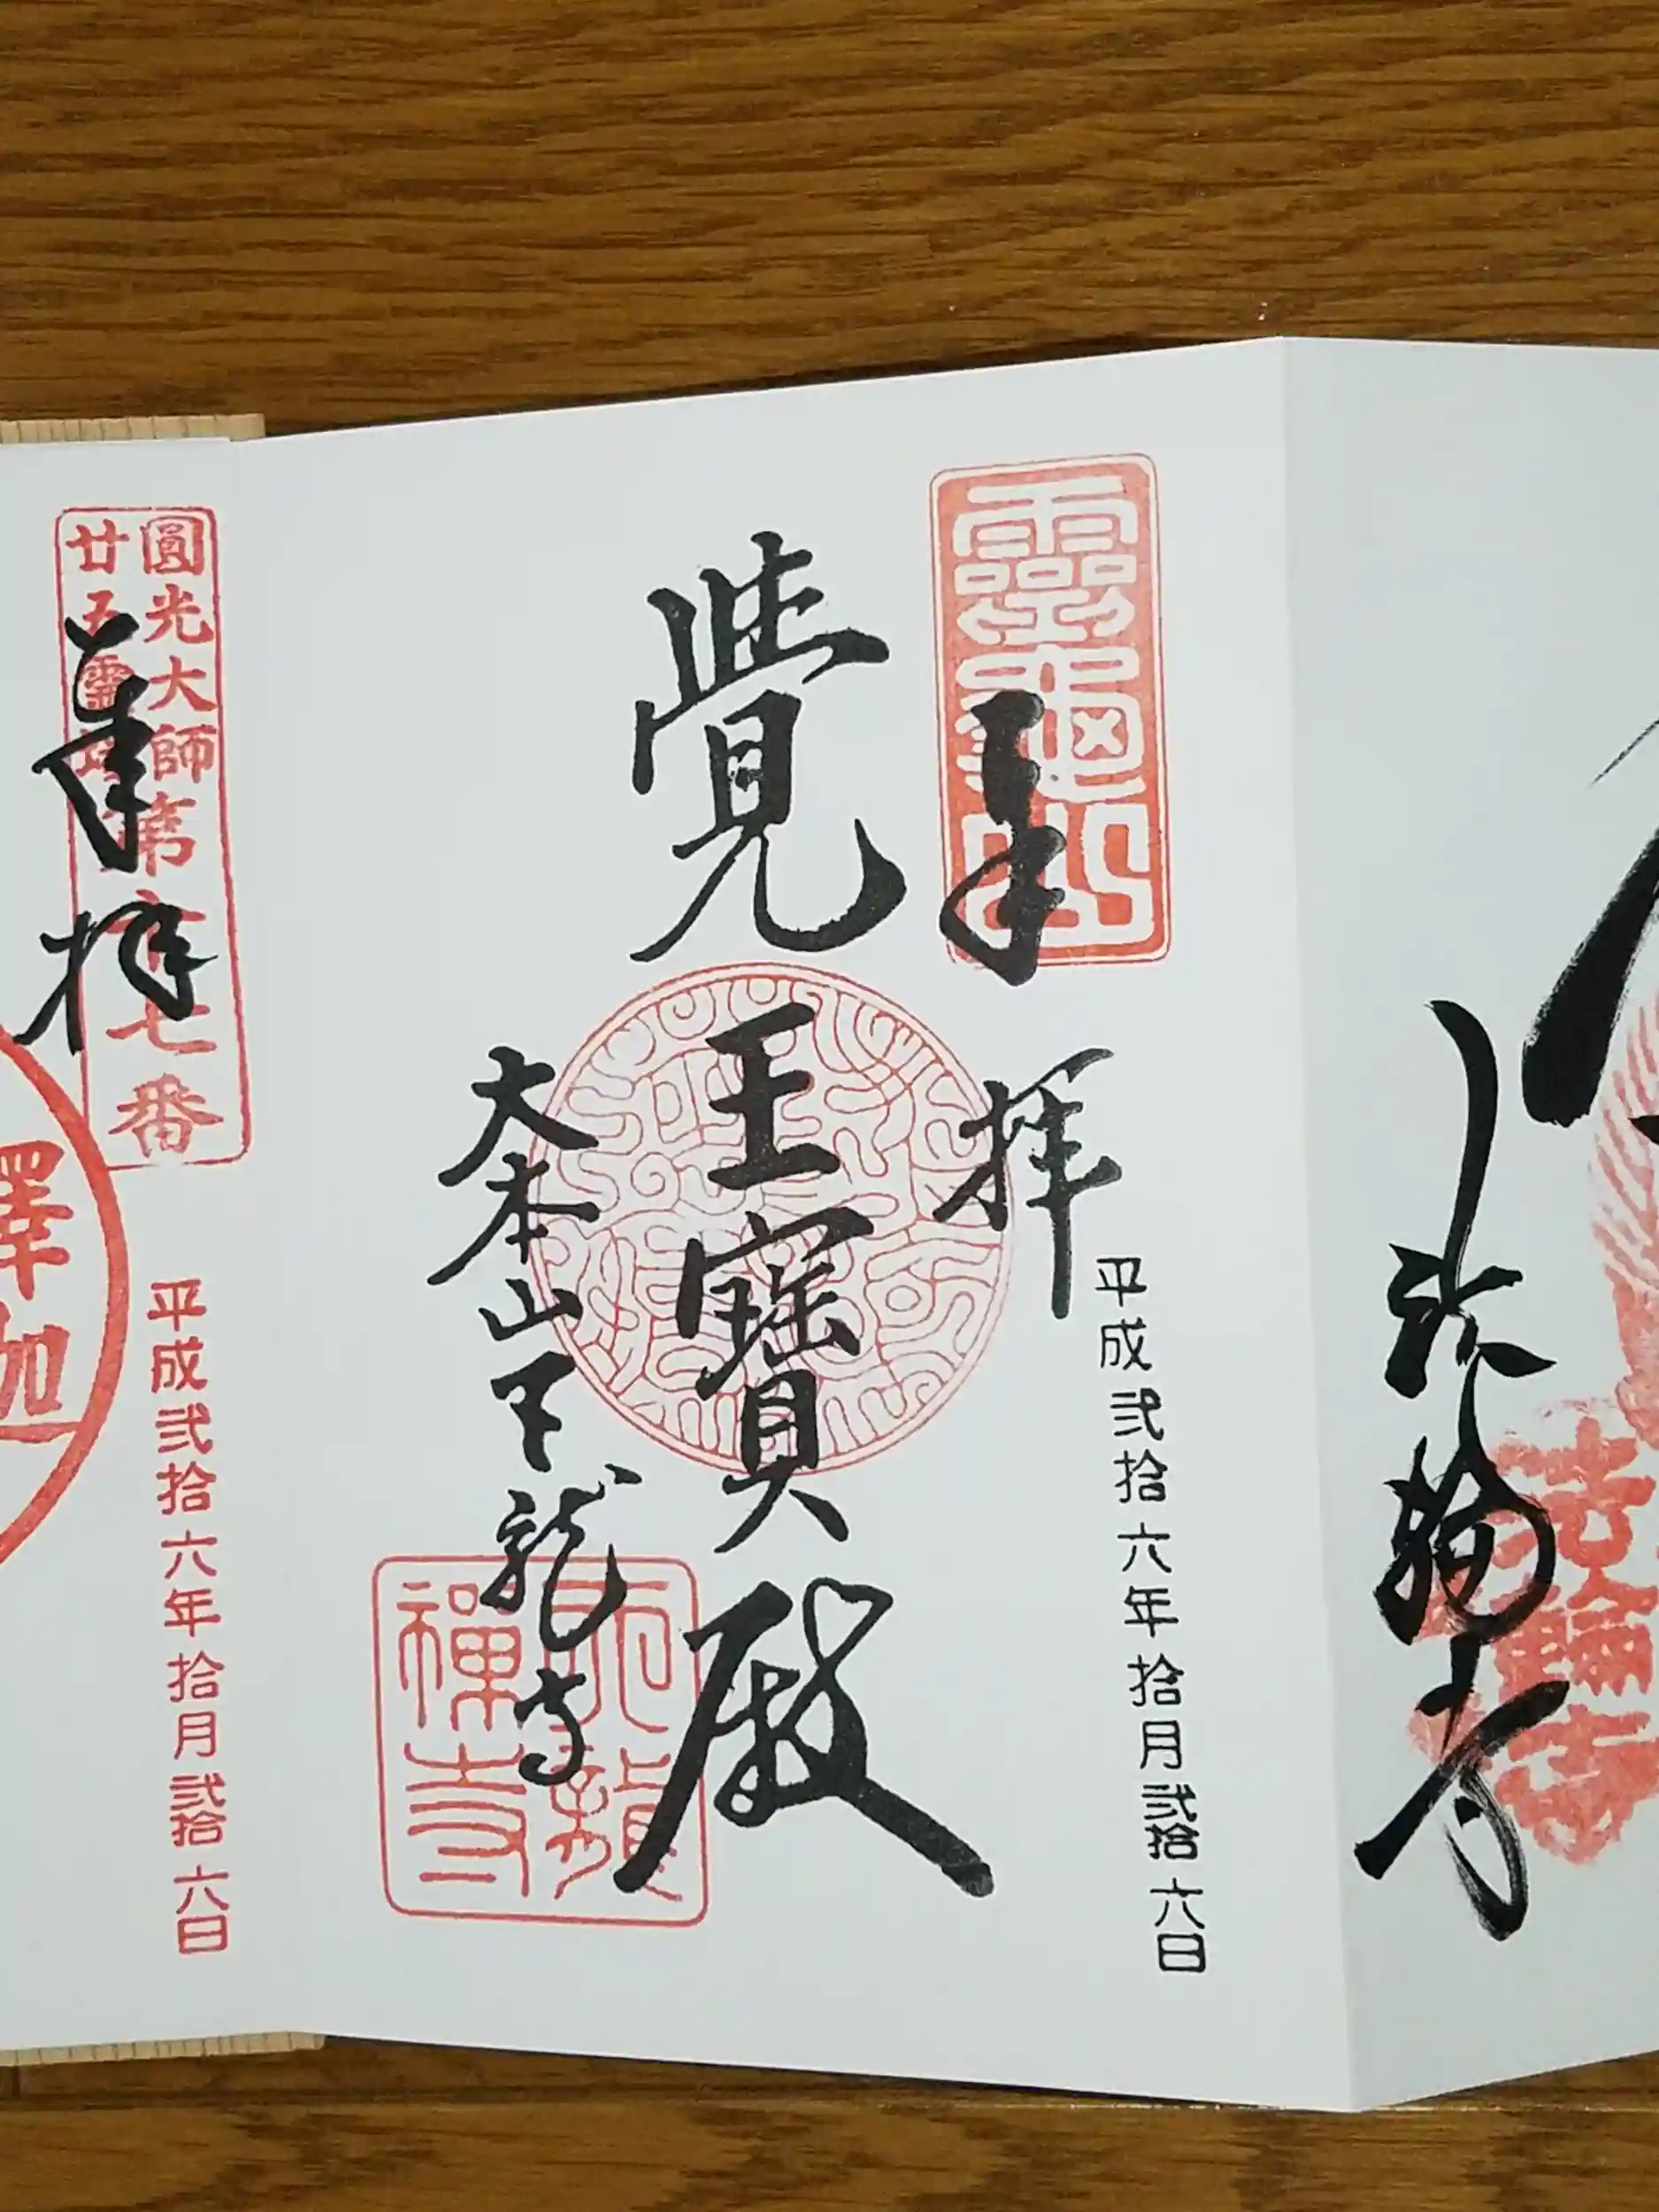 法輪寺
法輪寺
靈龜山
奉拝
平成弐拾六年拾月弐拾六日
覺王寳殿
大本山天龍寺
天龍
禪寺
圓光大師
廿五靈場
第十七番
奉拝
平成弐拾六年拾月弐拾六日